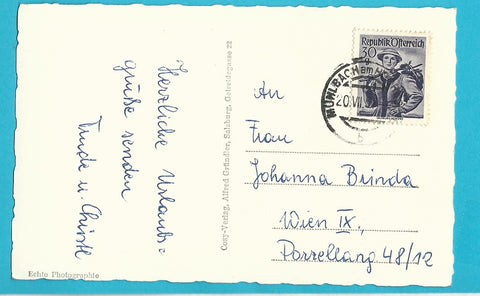 Herzliche Urlaubs=
grüße senden
Trude u. Christl
Echte Photographie
Cosy-Verlag, Alfred Gründler, Salzburg, Getreidegasse 22
Republik Österreich
30
g
MÜHLBACH am
20.VII.
b
An
Frau
Johanna Brinda
Wien IX,
Porzellang 48/12